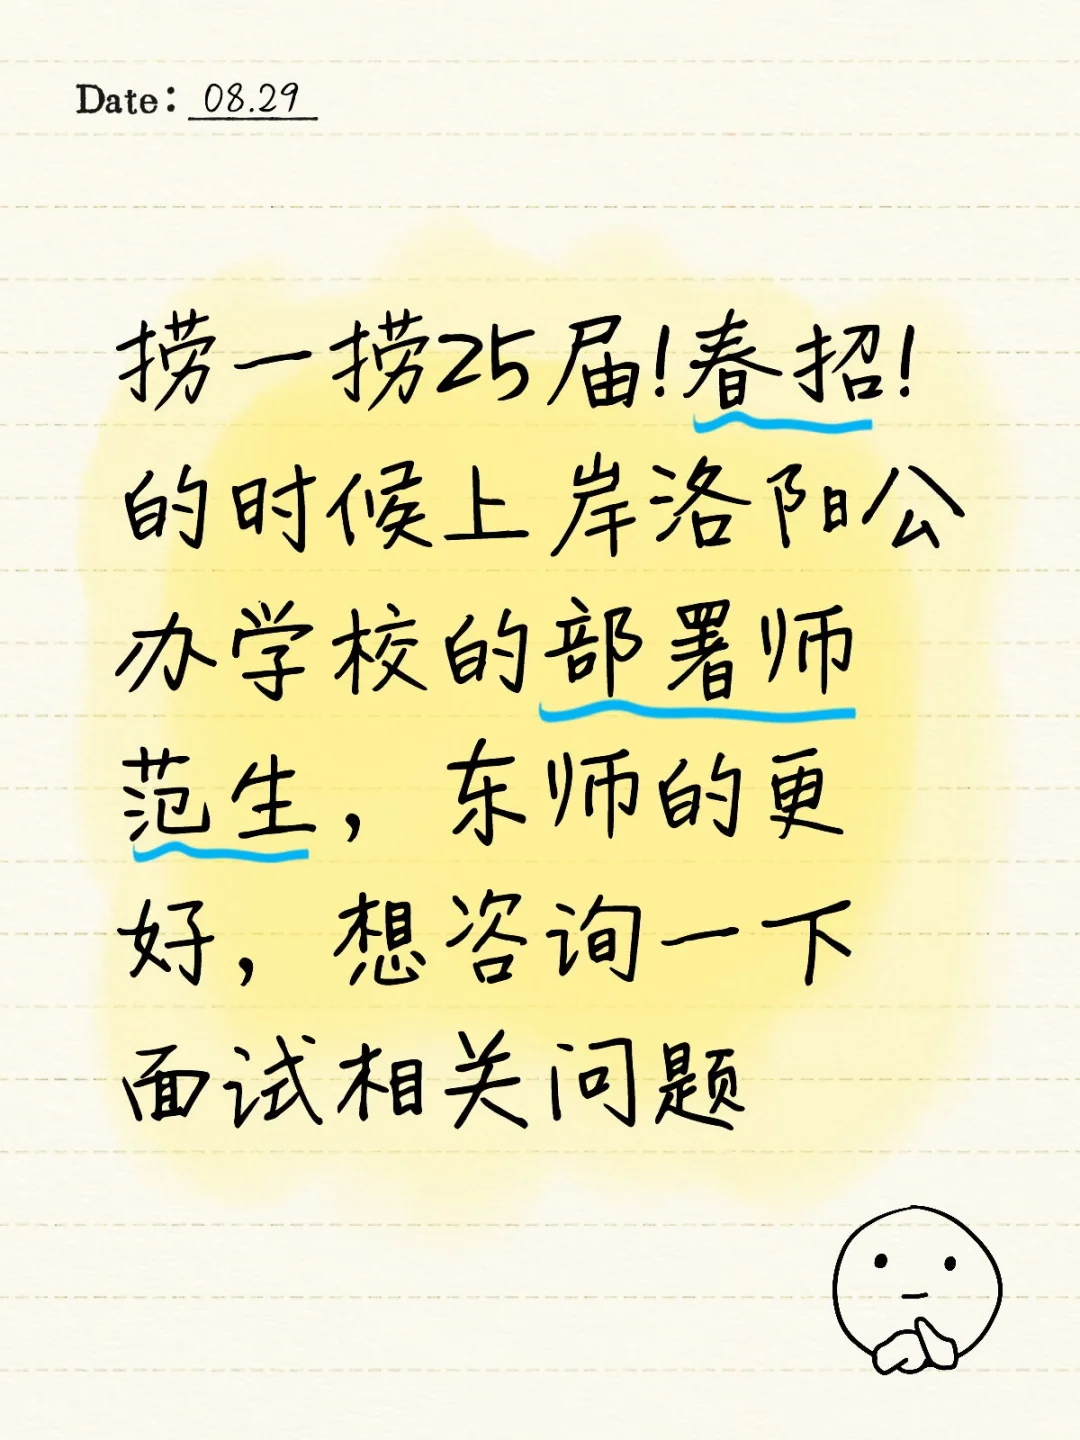 Date: 08.29
捞一捞25届!春招!
的时候上岸洛阳公
办学校的部署师
范生，东师的更
好，想咨询一下
面试相关问题